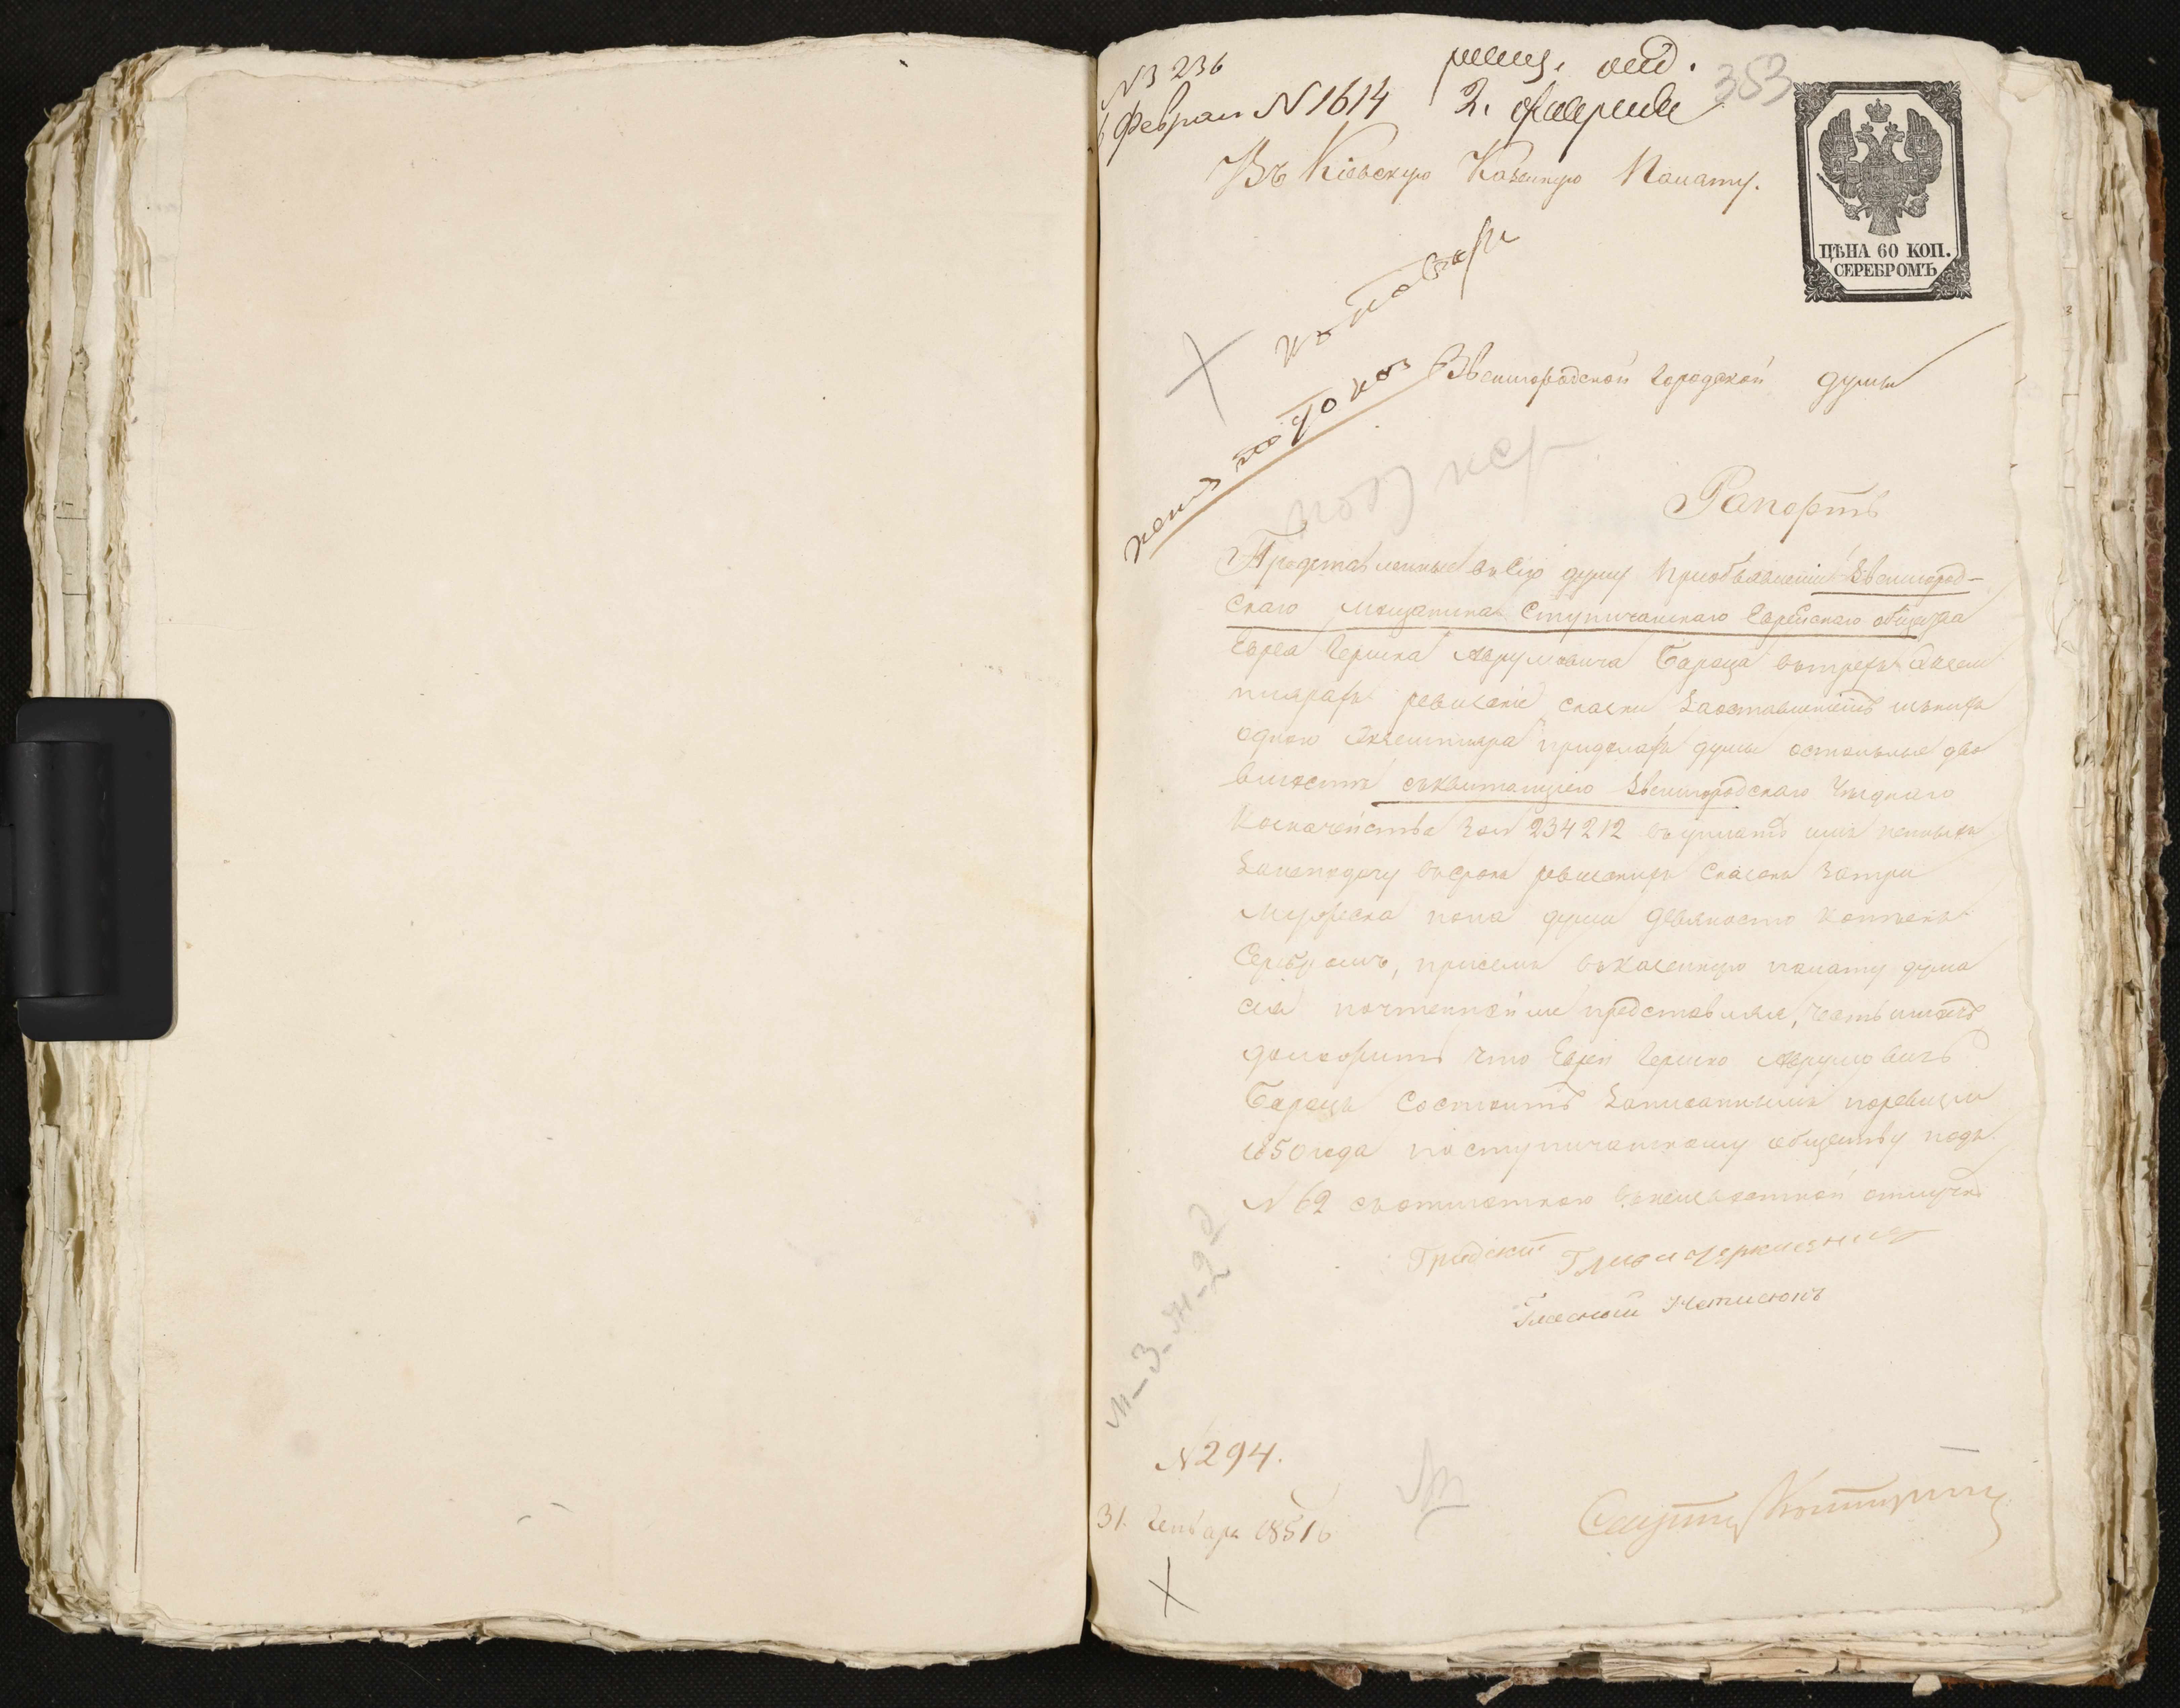 № 236
Февраля № 1614
2. февраля
353
Въ Кіевскую Казенную Палату.
ЦѢНА 60 КОП.
СЕРЕБРОМЪ
Звенигородской городской думы
Рапортъ
Представленные въ сію думу при объявленіи Звенигород-
скаго мещанина Ступичанскаго Еврейскаго общества
Еврея Гершка Аврумовича Бараца въ трехъ Экзем
плярахъ ревизскіе сказки за оставленіемъ изъ нихъ
одного Экземпляра при делахъ думы остальные два
вместе съ квитанціею Звенигородскаго Уезднаго
Казначейства за № 234212 въ уплате имъ пенныхъ
за неподачу въ срокъ ревизкихъ сказокъ за три
мужеска пола души девяносто копеекъ
Серебромъ, при семъ въ Казенную палату дума
сія почтеннейше представляя, честь имеетъ
доложить что Еврей Гершко Аврумовичъ
Барацъ Состоитъ записаннымъ по ревизіи
1850 года по ступичанскому обществу подъ
№ 62 съ отметкою въ неизвестной отлучке
Градскій Глава
Гласный
М-3-Ж-2
№ 294.
31. Генваря 1851